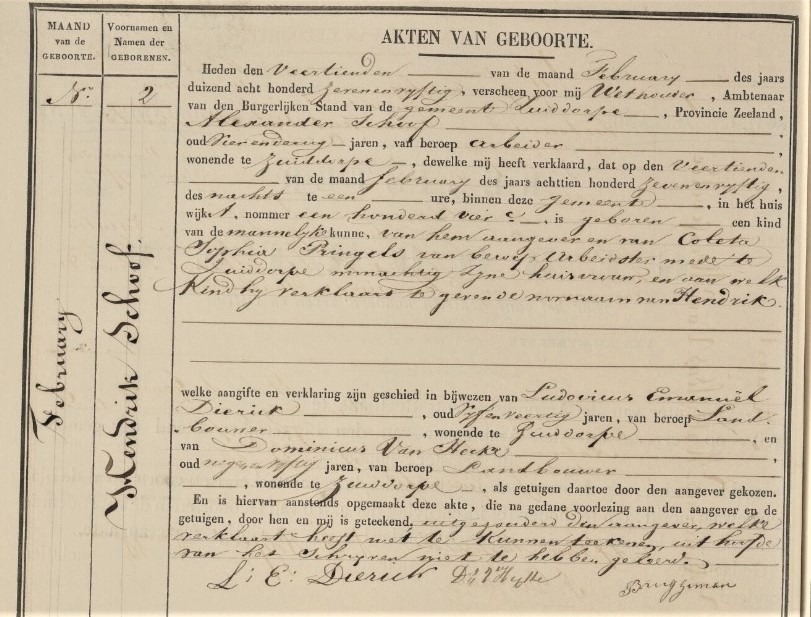 MAAND
van de
GEBOORTE.
Voornamen en
Namen der
GEBORENEN.
N.r
2
February
Hendrik Schoof.
AKTEN VAN GEBOORTE.
Heden den Veertienden van de maand February des jaars
duizend acht honderd zevenenvyftig, verscheen voor mij Wethouder, Ambtenaar
van den Burgerlijken Stand van de gemeente Zuiddorpe, Provincie Zeeland,
Alexander Schoof
oud Vierendertig jaren, van beroep arbeider
wonende te Zuiddorpe, dewelke mij heeft verklaard, dat op den Veertienden
van de maand february des jaars achttien honderd Zevenenvyftig,
des nachts te een ure, binnen deze Gemeente, in het huis
wijk 1, nommer een honderd vier c, is geboren een kind
van de mannelyke kunne, van hem aangever en van Coleta
Sophia Pringels van beroep Arbeidster mede te
Zuiddorpe woonachtig zyne huisvrouw, en aan welk
Kind hy verklaart te geven de voornaam van Hendrik.
welke aangifte en verklaring zijn geschied in bijwezen van Ludovicus Emanuël
Dierick, oud vyfenveertig jaren, van beroep Land
bouwer, wonende te Zuiddorpe, en
van Dominicus Van
oud negenenvyftig jaren, van beroep Landbouwer
, wonende te Zuiddorpe, als getuigen daartoe door den aangever gekozen.
En is hiervan aanstonds opgemaakt deze akte, die na gedane voorlezing aan den aangever en de
getuigen, door hen en mij is geteekend, uitgezonderd den aangever, welke
verklaart heeft niet te kunnen teekenen, uit hoofde
van het Schryven niet te hebben geleerd.
L: E: Dierick
Brugzeman